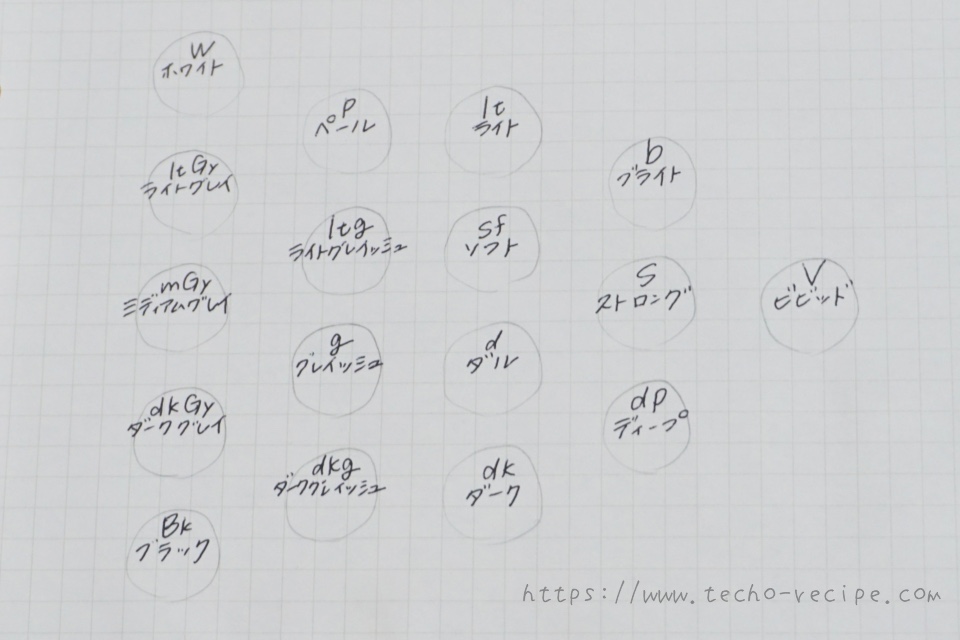 W
ホワイト
ltGy
ライトグレイ
mGy
ミディアムグレイ
dkGy
ダークグレイ
Bk
ブラック
p
ペール
ltg
ライトグレイッシュ
g
グレイッシュ
dkg
ダークグレイッシュ
lt
ライト
sf
ソフト
d
ダル
dk
ダーク
b
ブライト
S
ストロング
dp
ディープ
V
ビビッド
https://www.techo-recipe.com